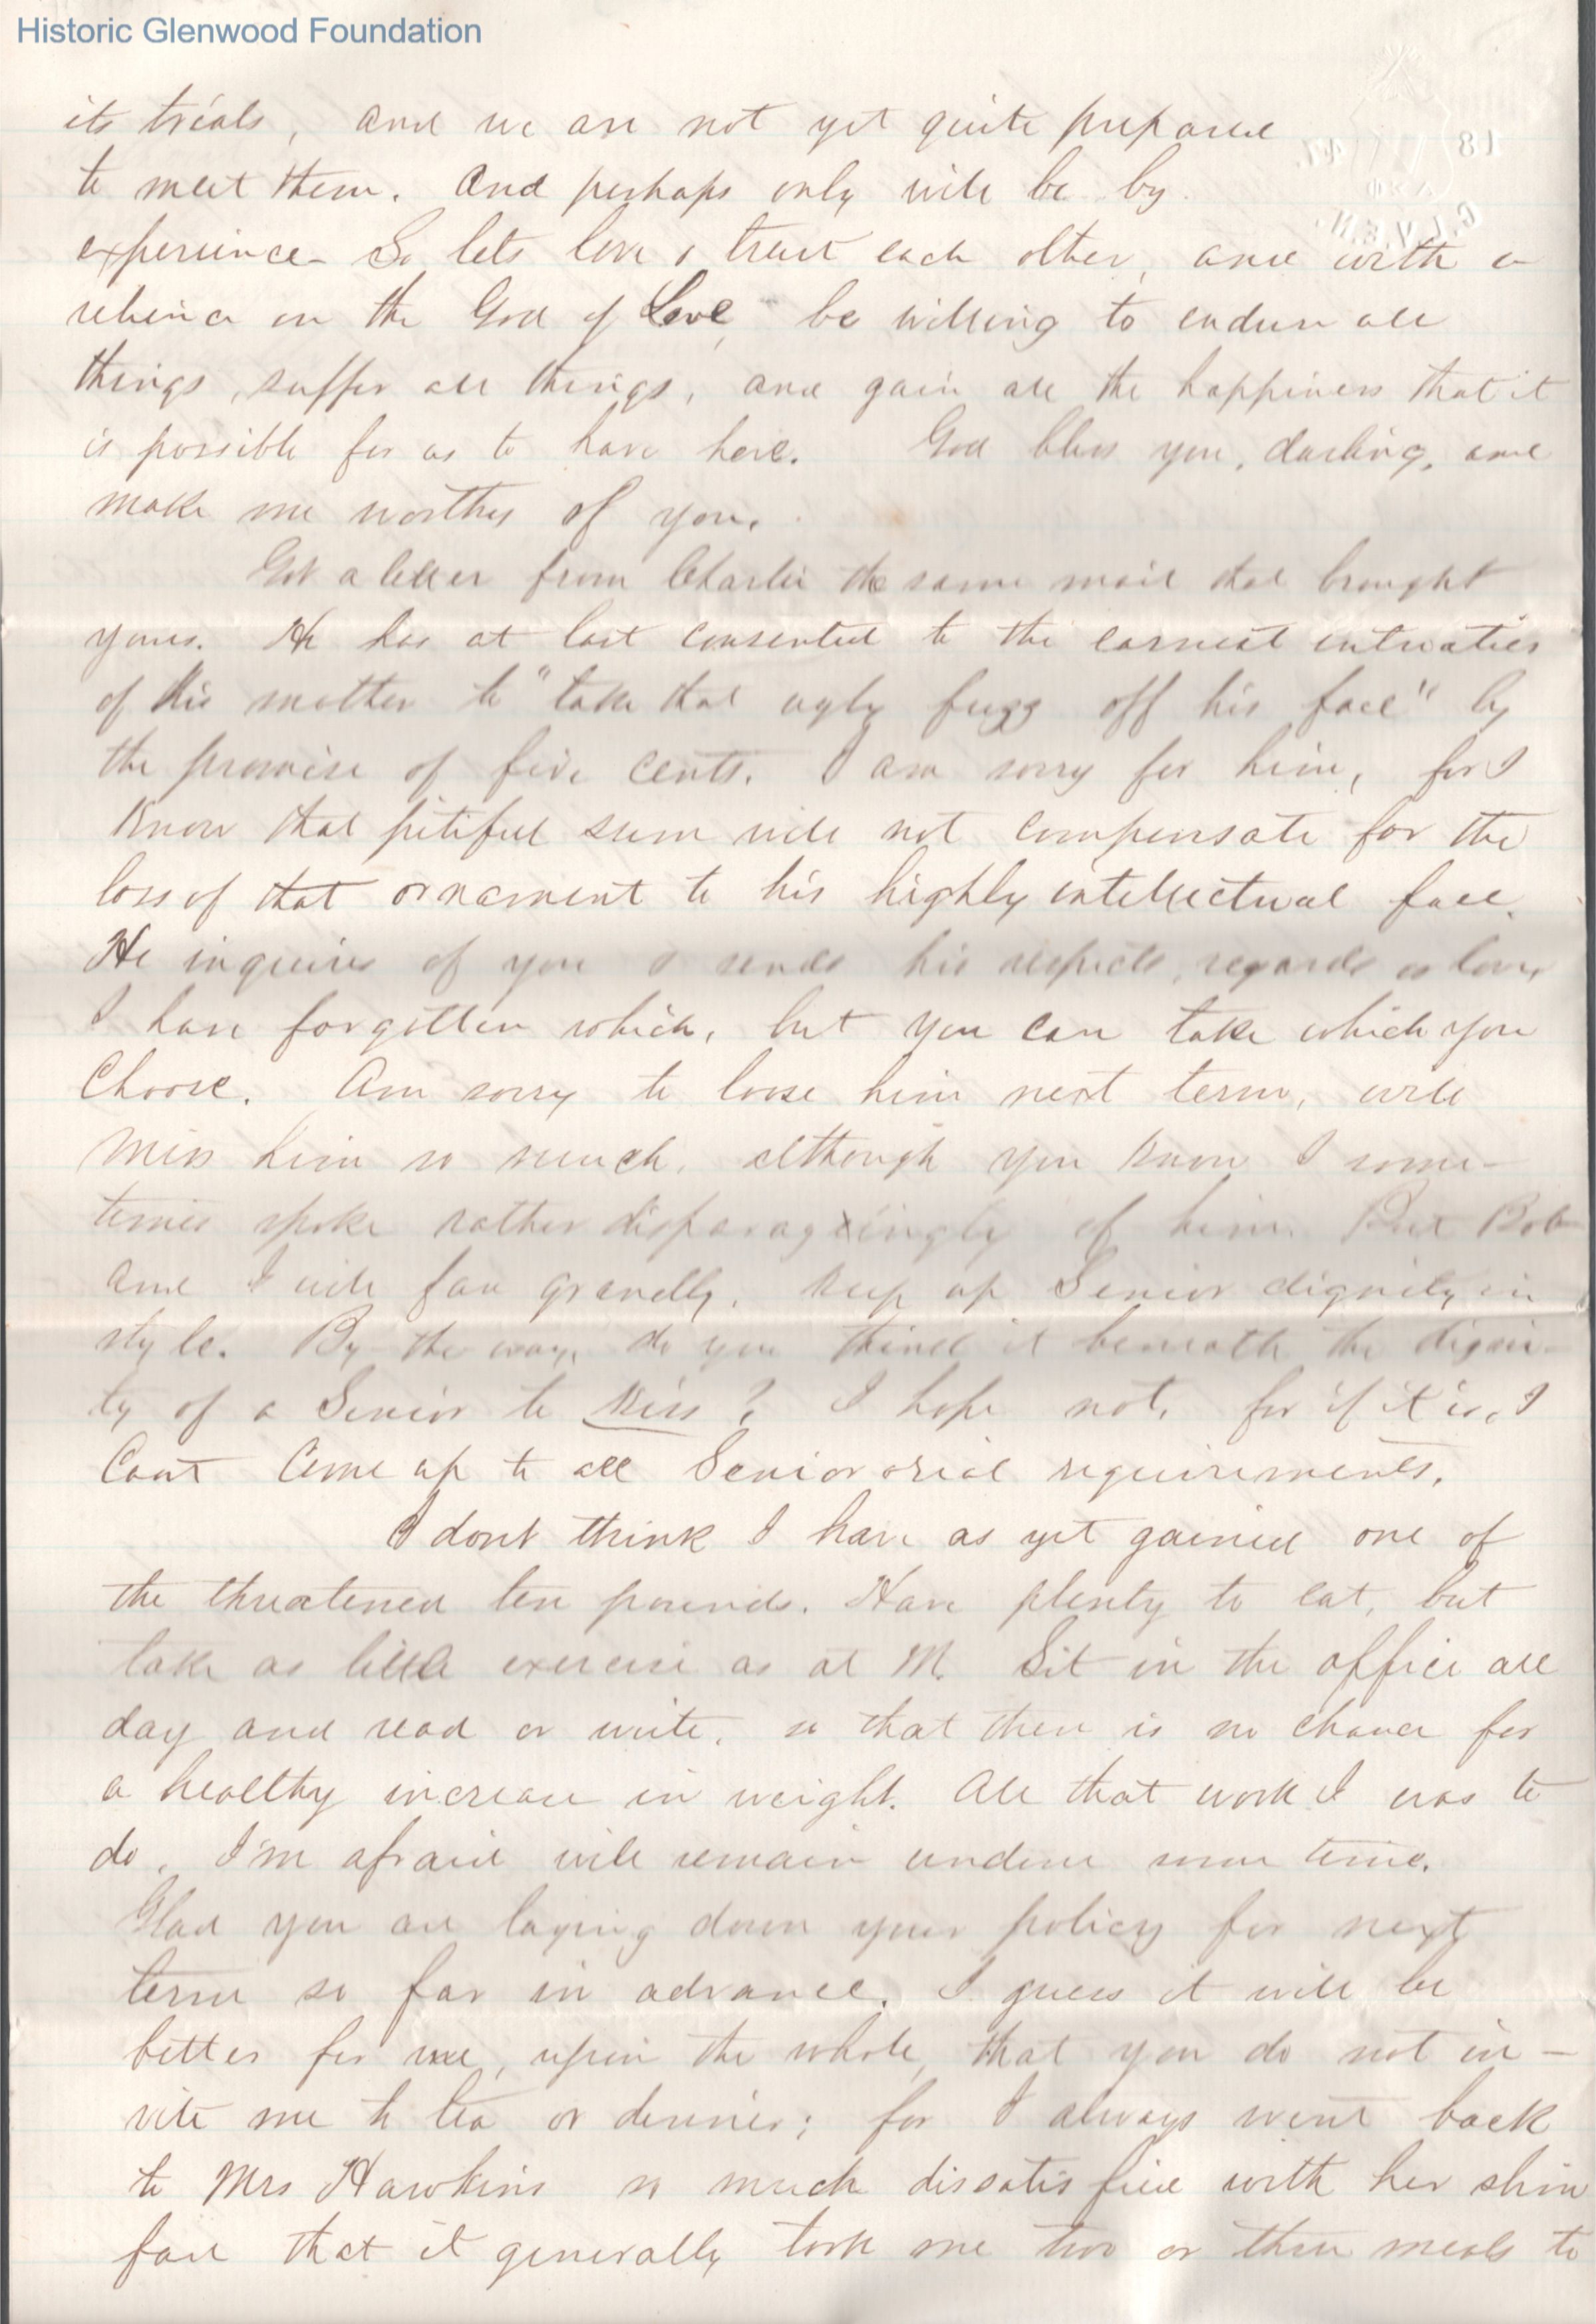 Historic Glenwood Foundation
its trials, and we are not yet quite prepared
to meet them. And perhaps only will be by
experience. So lets love & trust each other, and with a
reliance on the God of Love, be willing to endure all
things, suffer all things, and gain all the happiness that it
is possible for us to have here. God bless you, darling, and
make me worthy of you.
Got a letter from Charlie the same mail that brought
yours. He has at last consented to the earnest entreaties
of his mother to "take that ugly fuzz off his face" by
the promise of five cents. I am sorry for him, for I
know that pitiful sum will not compensate for the
loss of that ornament to his highly intellectual face.
He inquires of you & sends his respects, regards or love,
I have forgotten which, but you can take which you
choose. Am sorry to loose him next term, will
miss him so much, although you know I some-
times spoke rather disparagingly of him. But Bob
and I will fare grandly, keep up Senior dignity in
style. By the way, do you think it beneath the digni-
ty of a Senior to kiss? I hope not, for if it is, I
Cant Come up to all Seniororial requirements.
I dont think I have as yet gained one of
the threatened ten pounds. Have plenty to eat, but
take as little exercise as at M. Sit in the office all
day and read or write, so that there is no chance for
a healthy increase in weight. All that work I was to
do, I'm afraid will remain undone some time.
Glad you are laying down your policy for next
term so far in advance. I guess it will be
better for me, upon the whole, that you do not in-
vite me to tea or dinner; for I always went back
to Mrs Hawkins so much dissatisfied with her slim
fare that it generally took me two or three meals to